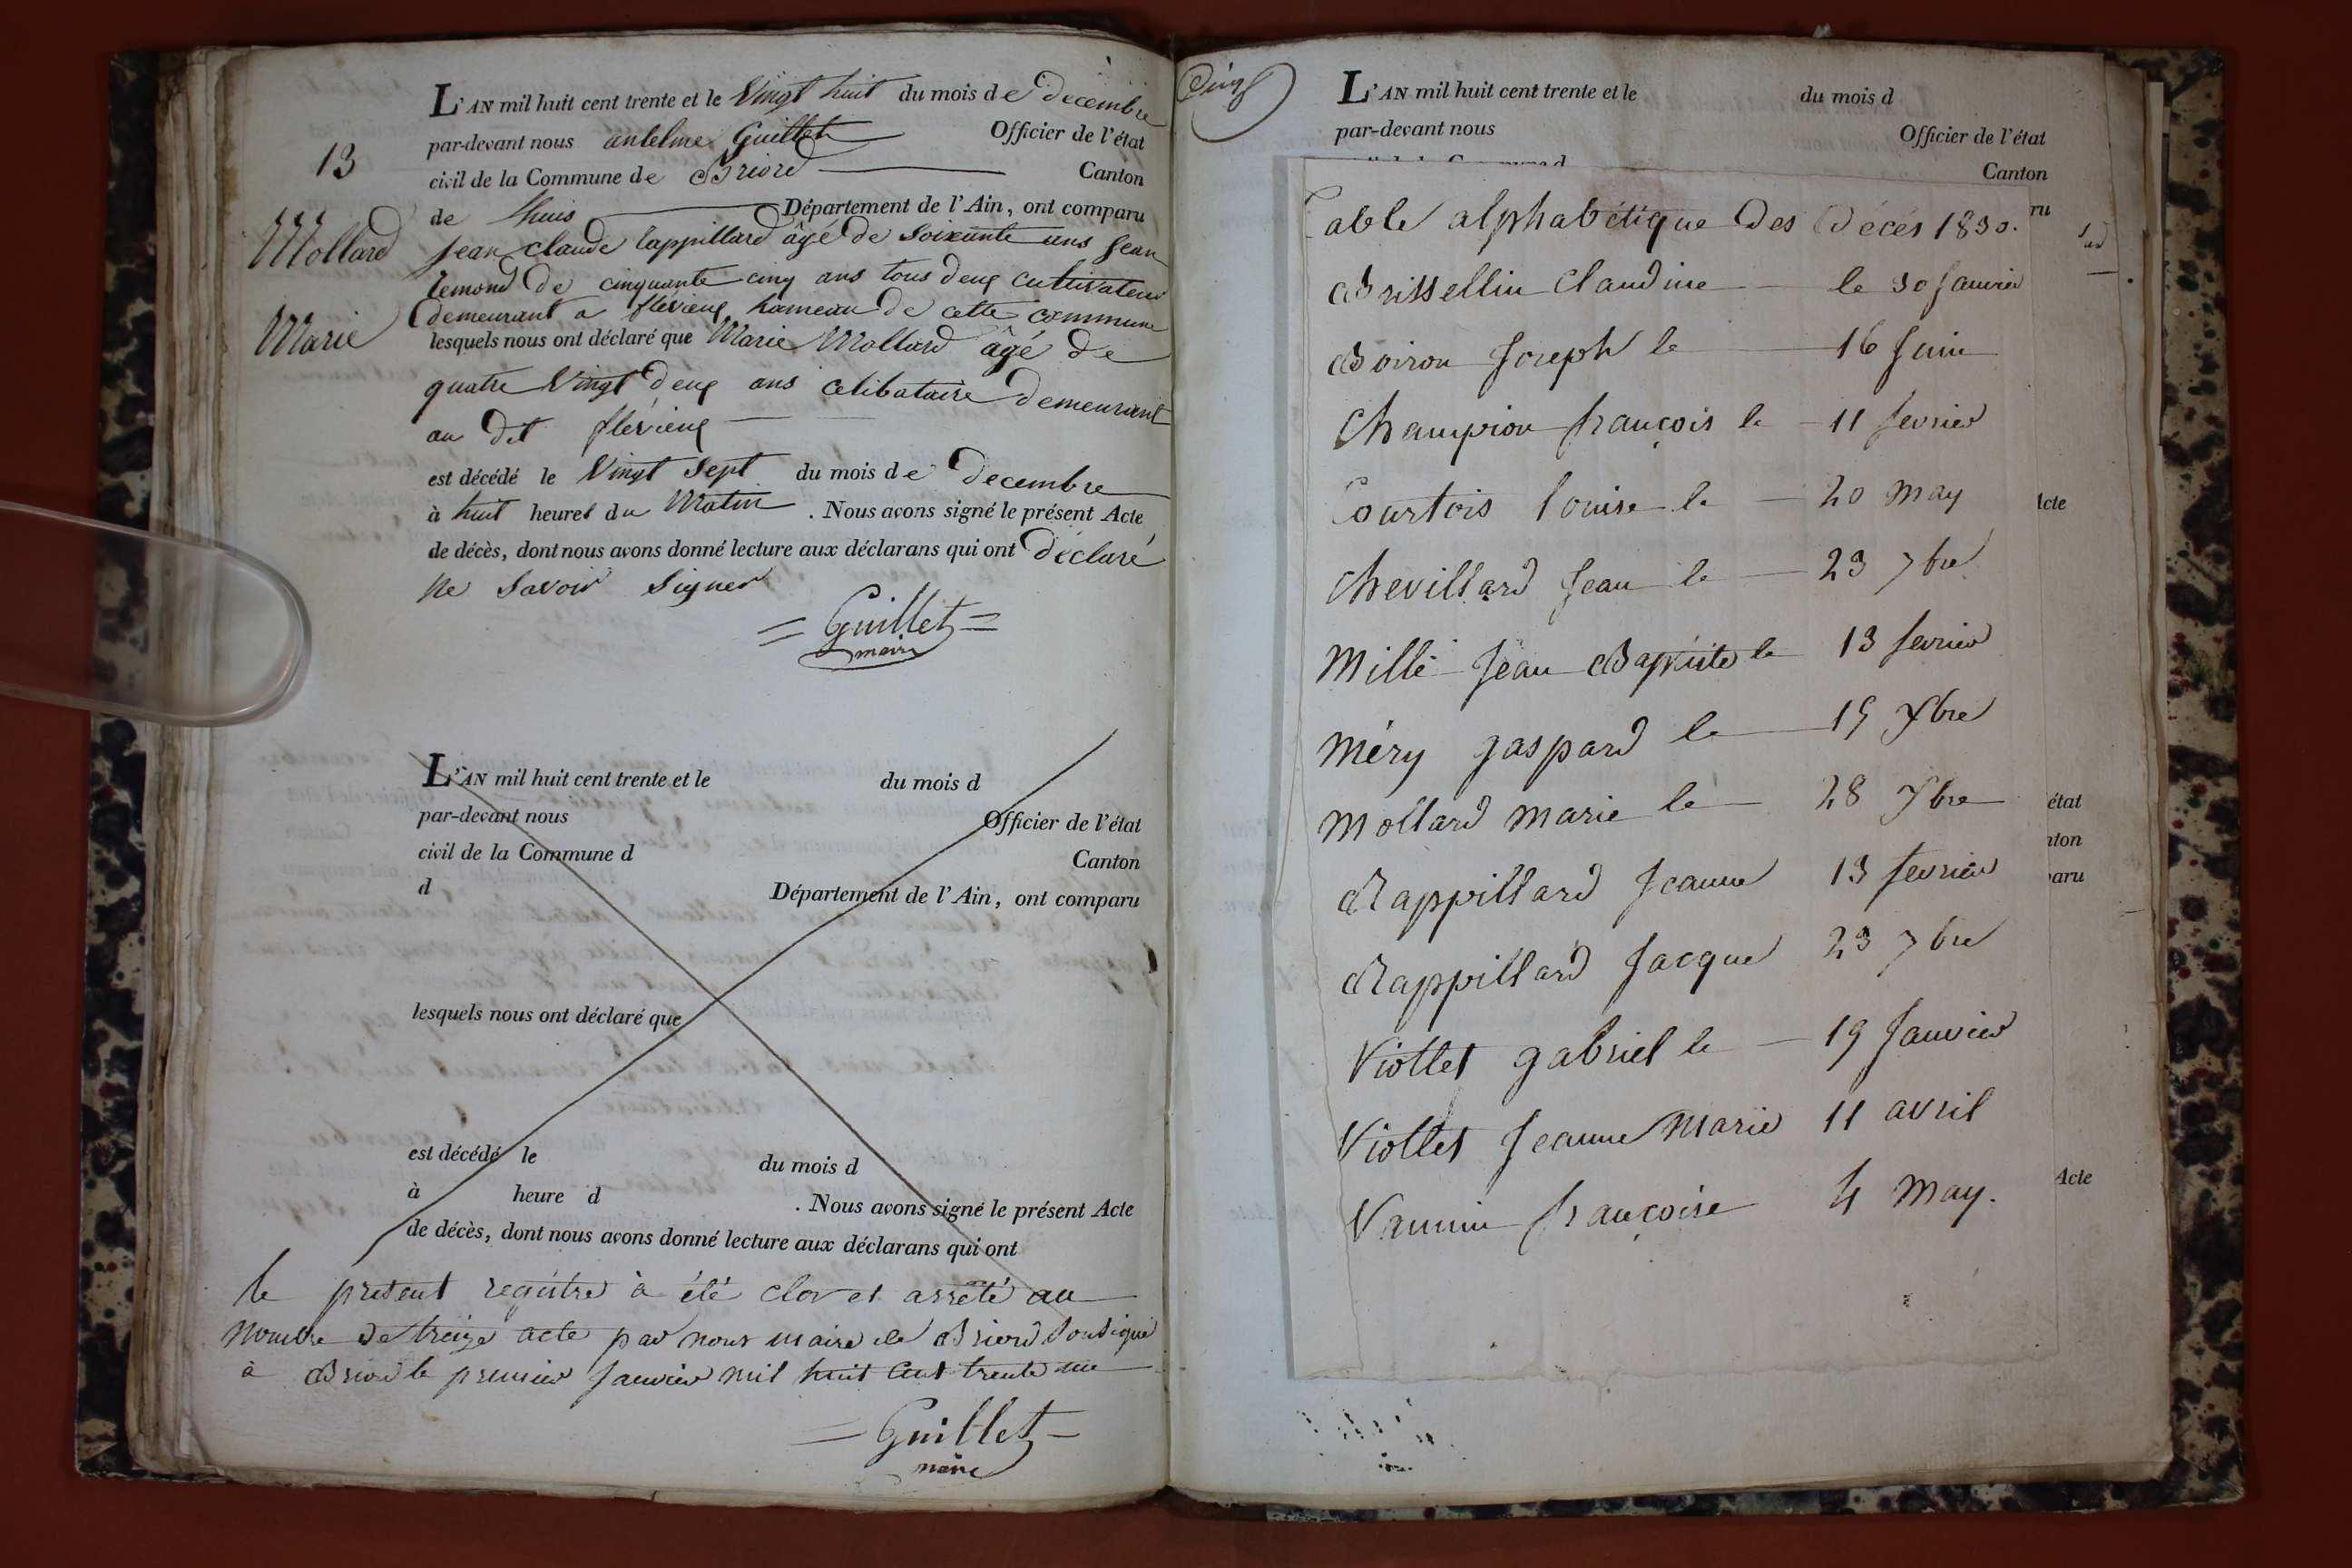 L'AN mil huit cent trente et le Vingt huit du mois de decembre
par-devant nous antelme Guillet Officier de l'état
civil de la Commune de Briord Canton
13
de lhuis Département de l'Ain, ont comparu
Mollard
Jean claude rappillard âgé de soixante ans Jean
remond de cinquante cinq ans tous deux cultivateur
demeurant a flévieux hameau de cette commune
Marie
lesquels nous ont déclaré que Marie Mollard âgé de
quatre Vingt deux ans celibataire demeurant
au dit flévieux
est décédé le Vingt Sept du mois de decembre
à huit heures du Matin . Nous avons signé le présent Acte
de décès, dont nous avons donné lecture aux déclarans qui ont déclaré
ne Savoir Signer
= Guillet =
maire
L'AN mil huit cent trente et le du mois d
par-devant nous Officier de l'état
civil de la Commune d Canton
d Département de l'Ain, ont comparu
lesquels nous ont déclaré que
est décédé le du mois d
à heure d . Nous avons signé le présent Acte
de décès, dont nous avons donné lecture aux déclarans qui ont
le présent registre à été clos et arrêté au
nombre de treize acte par nous maire de Briord Sousigné
à Briord le premier Janvier mil huit cent trente un
= Guillet =
maire
Cinq
L'AN mil huit cent trente et le du mois d
par-devant nous Officier de l'état
Canton
ru
Table alphabétique des Décés 1830.
Brissellin Claudine le 30 Janvier
Boiron Joseph le 16 Juin
Champion françois le 11 fevrier
Courtois louise le 20 may
Acte
Chevillard Jean le 23 7bre
Millé Jean Baptiste le 13 fevrier
Méry gaspard le 15 Xbre
Mollard Marie le 28 Xbre
état
nton
Rappillard Jeanne 13 fevrier
aru
Rappillard Jacque 23 7bre
Viollet gabriel le 19 Janvier
Viollet Jeanne Marie 11 avril
Acte
Vannin françoise 4 may.